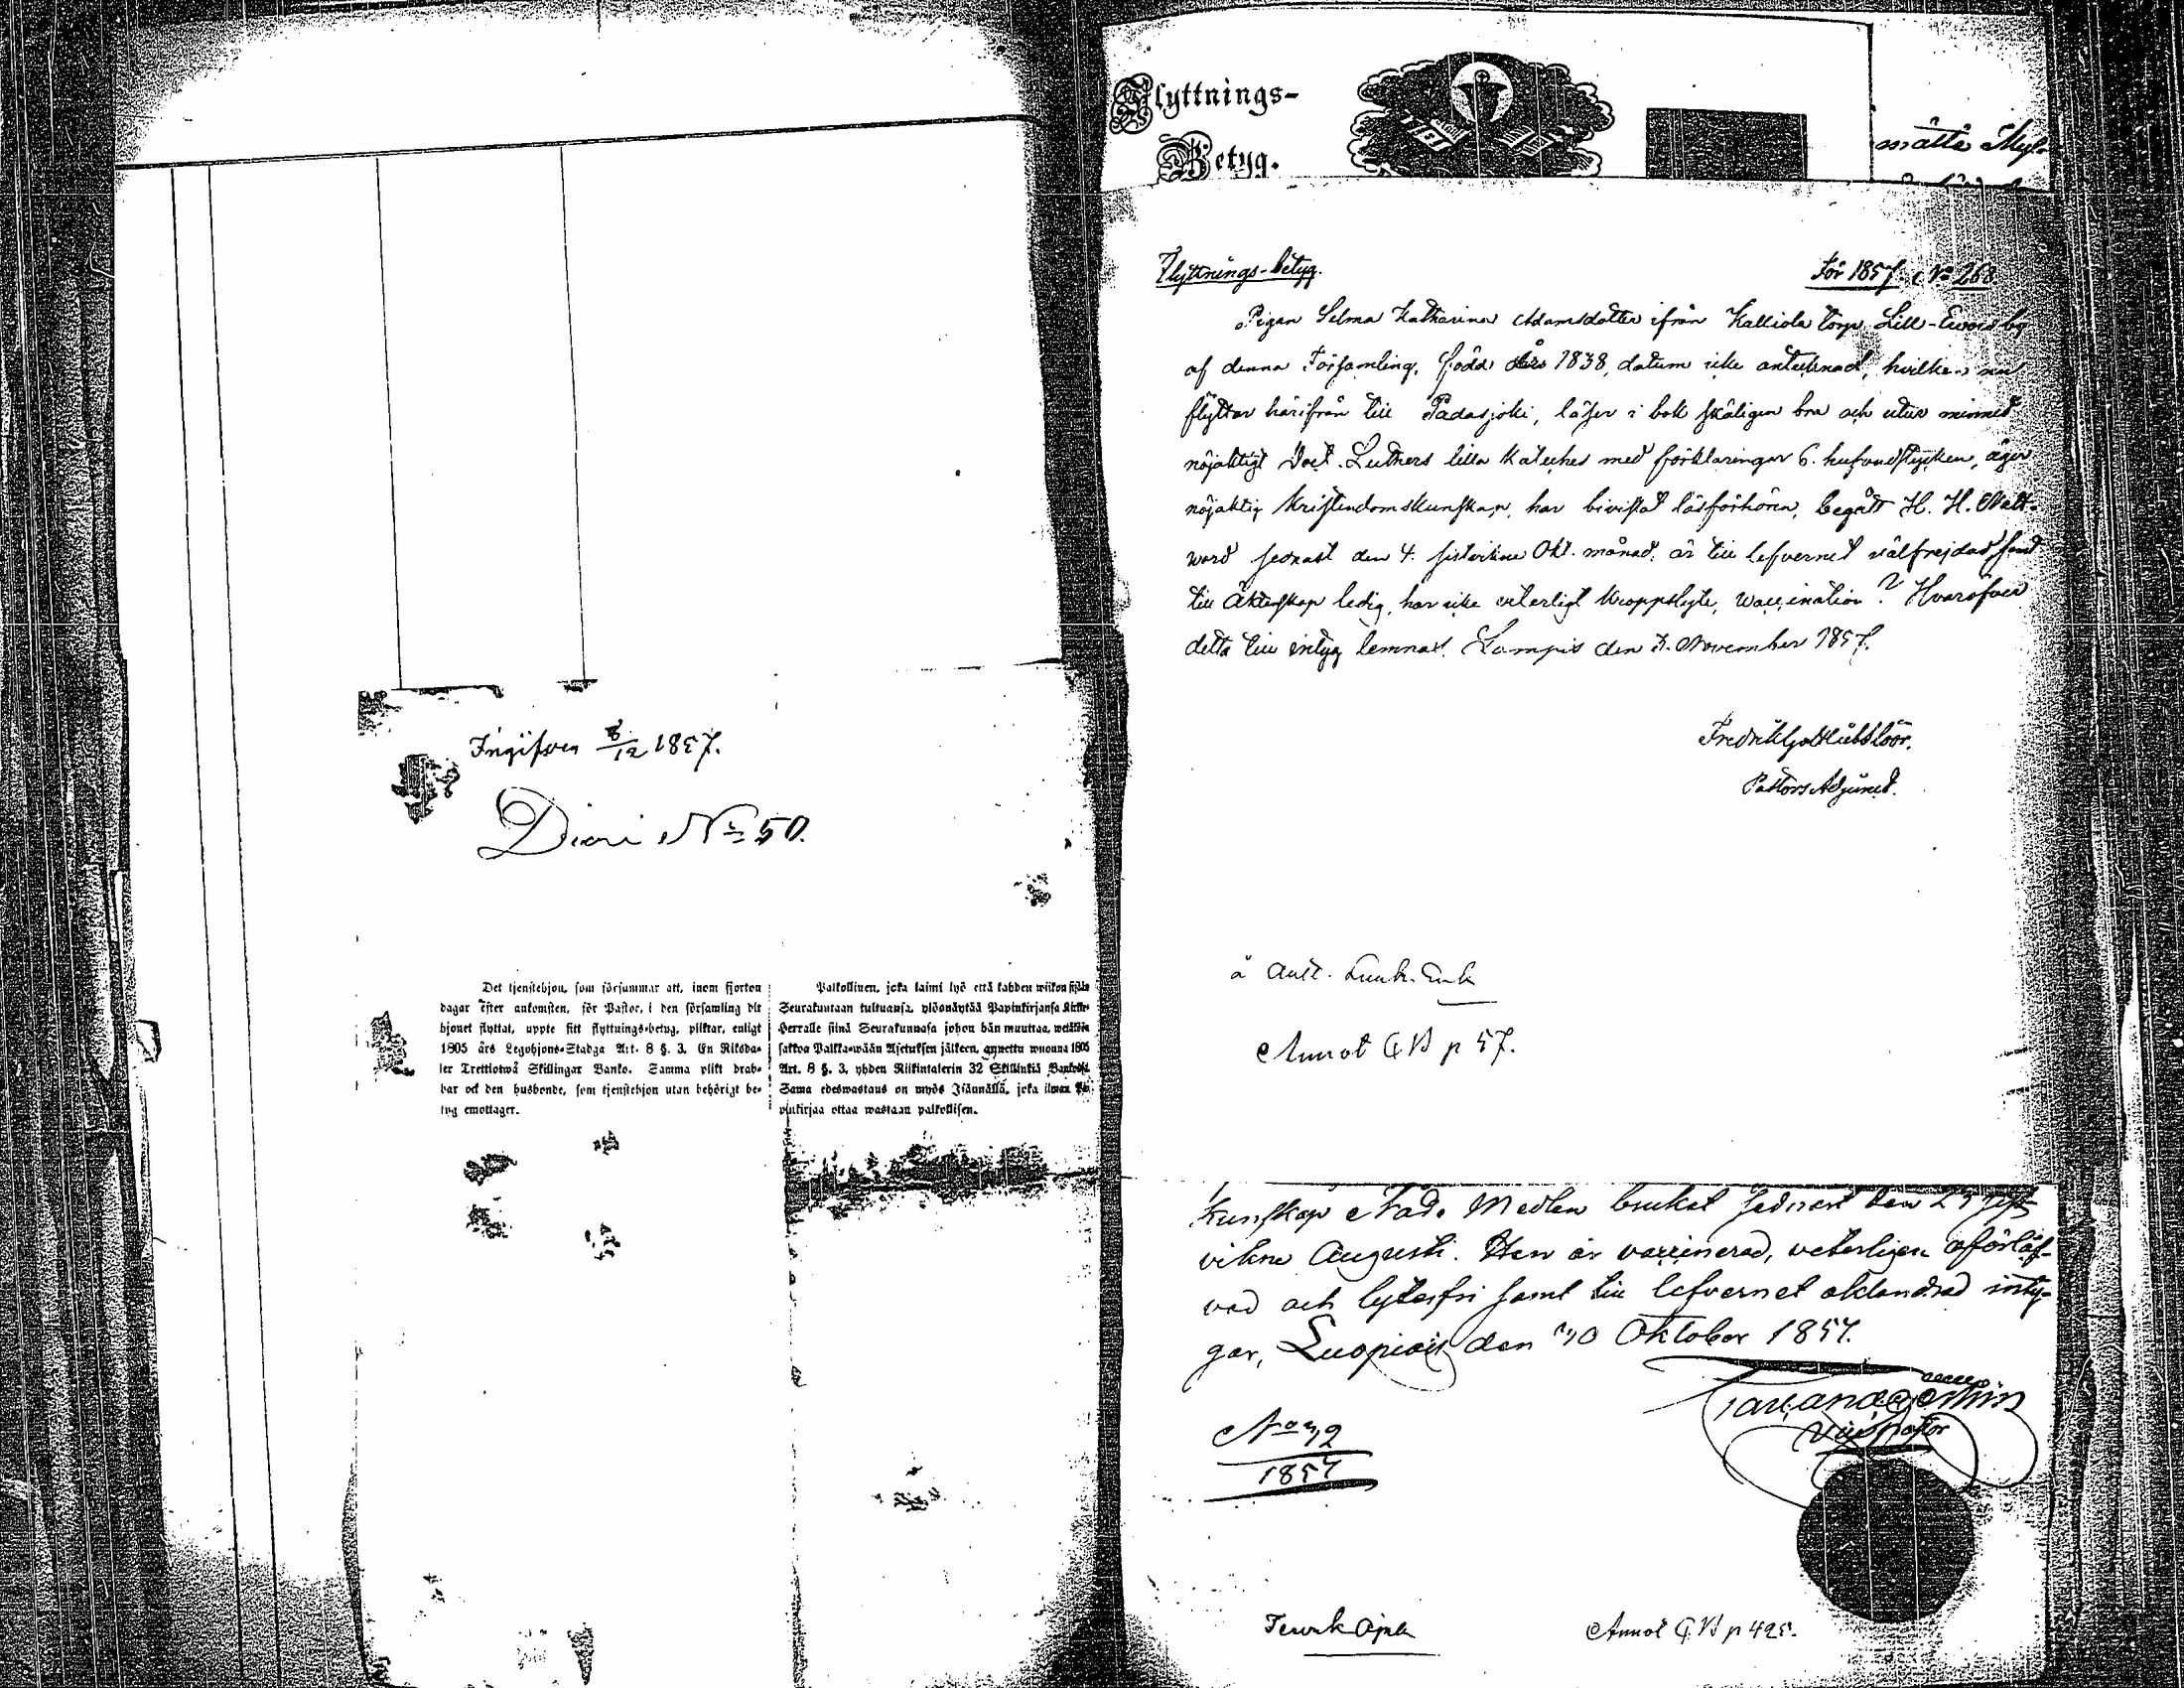 Ingifven 8/12 1857.
Diari No 50.
Det tjenstehjon, som försummar att, inom fjorton
dagar efter ankomsten, för Pastor, i den församling dit
hjonet flyttat, uppte sitt flyttnings-betyg, pliktar, enligt
1805 års Legohjons-Stadga Art. 8 §. 3. En Riksda-
ler Trettiotwå Skillingar Banko. Samma plikt drab-
bar ock den husbonde, som tjenstehjon utan behörigt be-
tyg emottager.
Palkollinen, joka laimi lyö että kahden wiikon sisään
Seurakuntaan tultuansa, ylösnäytää Papinkirjansa Kirkko-
Herralle siinä Seurakunnasa johon hän muuttaa, wetäköön
sakkoa Palkka-wään Asetuksen jälkeen, annettu wuonna 1805
Art. 8 §. 3. yhden Riikintalerin 32 Skillinkiä Bankosa.
Sama edeswastaus on myös Isännällä, joka ilman Pa-
pinkirjaa ottaa wastaan palkollisen.
Flyttnings-
Betyg.
måtta
Flyttnings-betyg. För 1857. No 268
Pigan Selma Katharina Adamsdotter ifrån Kalliola torp Lill-Ewois by
af denna Församling, född års 1838, datum icke antecknad, hvilken nu
flyttar härifrån till Padasjoki, läser i bok skäligen bra och utur minnet
nöjaktigt Doct. Luthers lilla Kateches med förklaringar 6. hufvudstycken, äger
nöjaktig Kristendomskunskap, har bivistat läsförhören, begått H. H. Natt-
ward sednast den 4. sistvikne Okt. månad, är till lefvernet välfrejdad samt
till Äktenskap ledig, har icke veterligt kroppslyte, Vaccination? Hvaröfver
detta till intyg lemnas. Lampis den 7. November 1857.
Fredrik Gottlieb Löör.
Pastors Adjunct.
å Ault.
Annot C B p 57.
kunskap Nåde Medlen brukat sednast den 23 sist-
vikne Augusti. Han är vaccinerad, veterligen oförlof-
vad och lytesfri samt till lefvernet oklandrad inty-
gar, Luopiois den 10 Oktober 1857.
Vice Pastor
No 42
1857
Annot C B p 425.